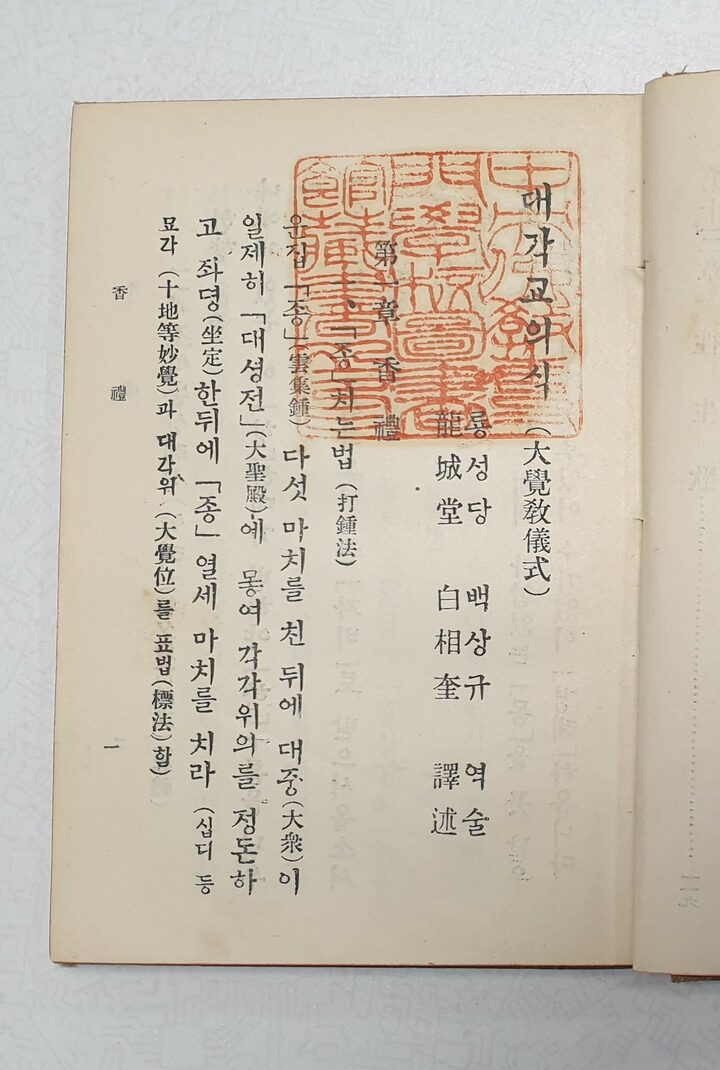 대각교의식(大覺敎儀式)
룡성당 백상규 역술
龍城堂 白相奎 譯述
第一章 香禮
一、「종」치는법(打鍾法)
운집「종」(雲集鍾) 다섯 마치를 친 뒤에 대중(大衆)이
일제히「대셩전」(大聖殿)예 몽여 각각위의를 정돈하
고 좌뎡(坐定)한뒤에「종」열세 마치를 치라 (십디 등
묘각 (十地等妙覺)과 대각위(大覺位)를 표법(標法)함)
香禮
一
中央佛敎專
門學校圖書
館藏書之印